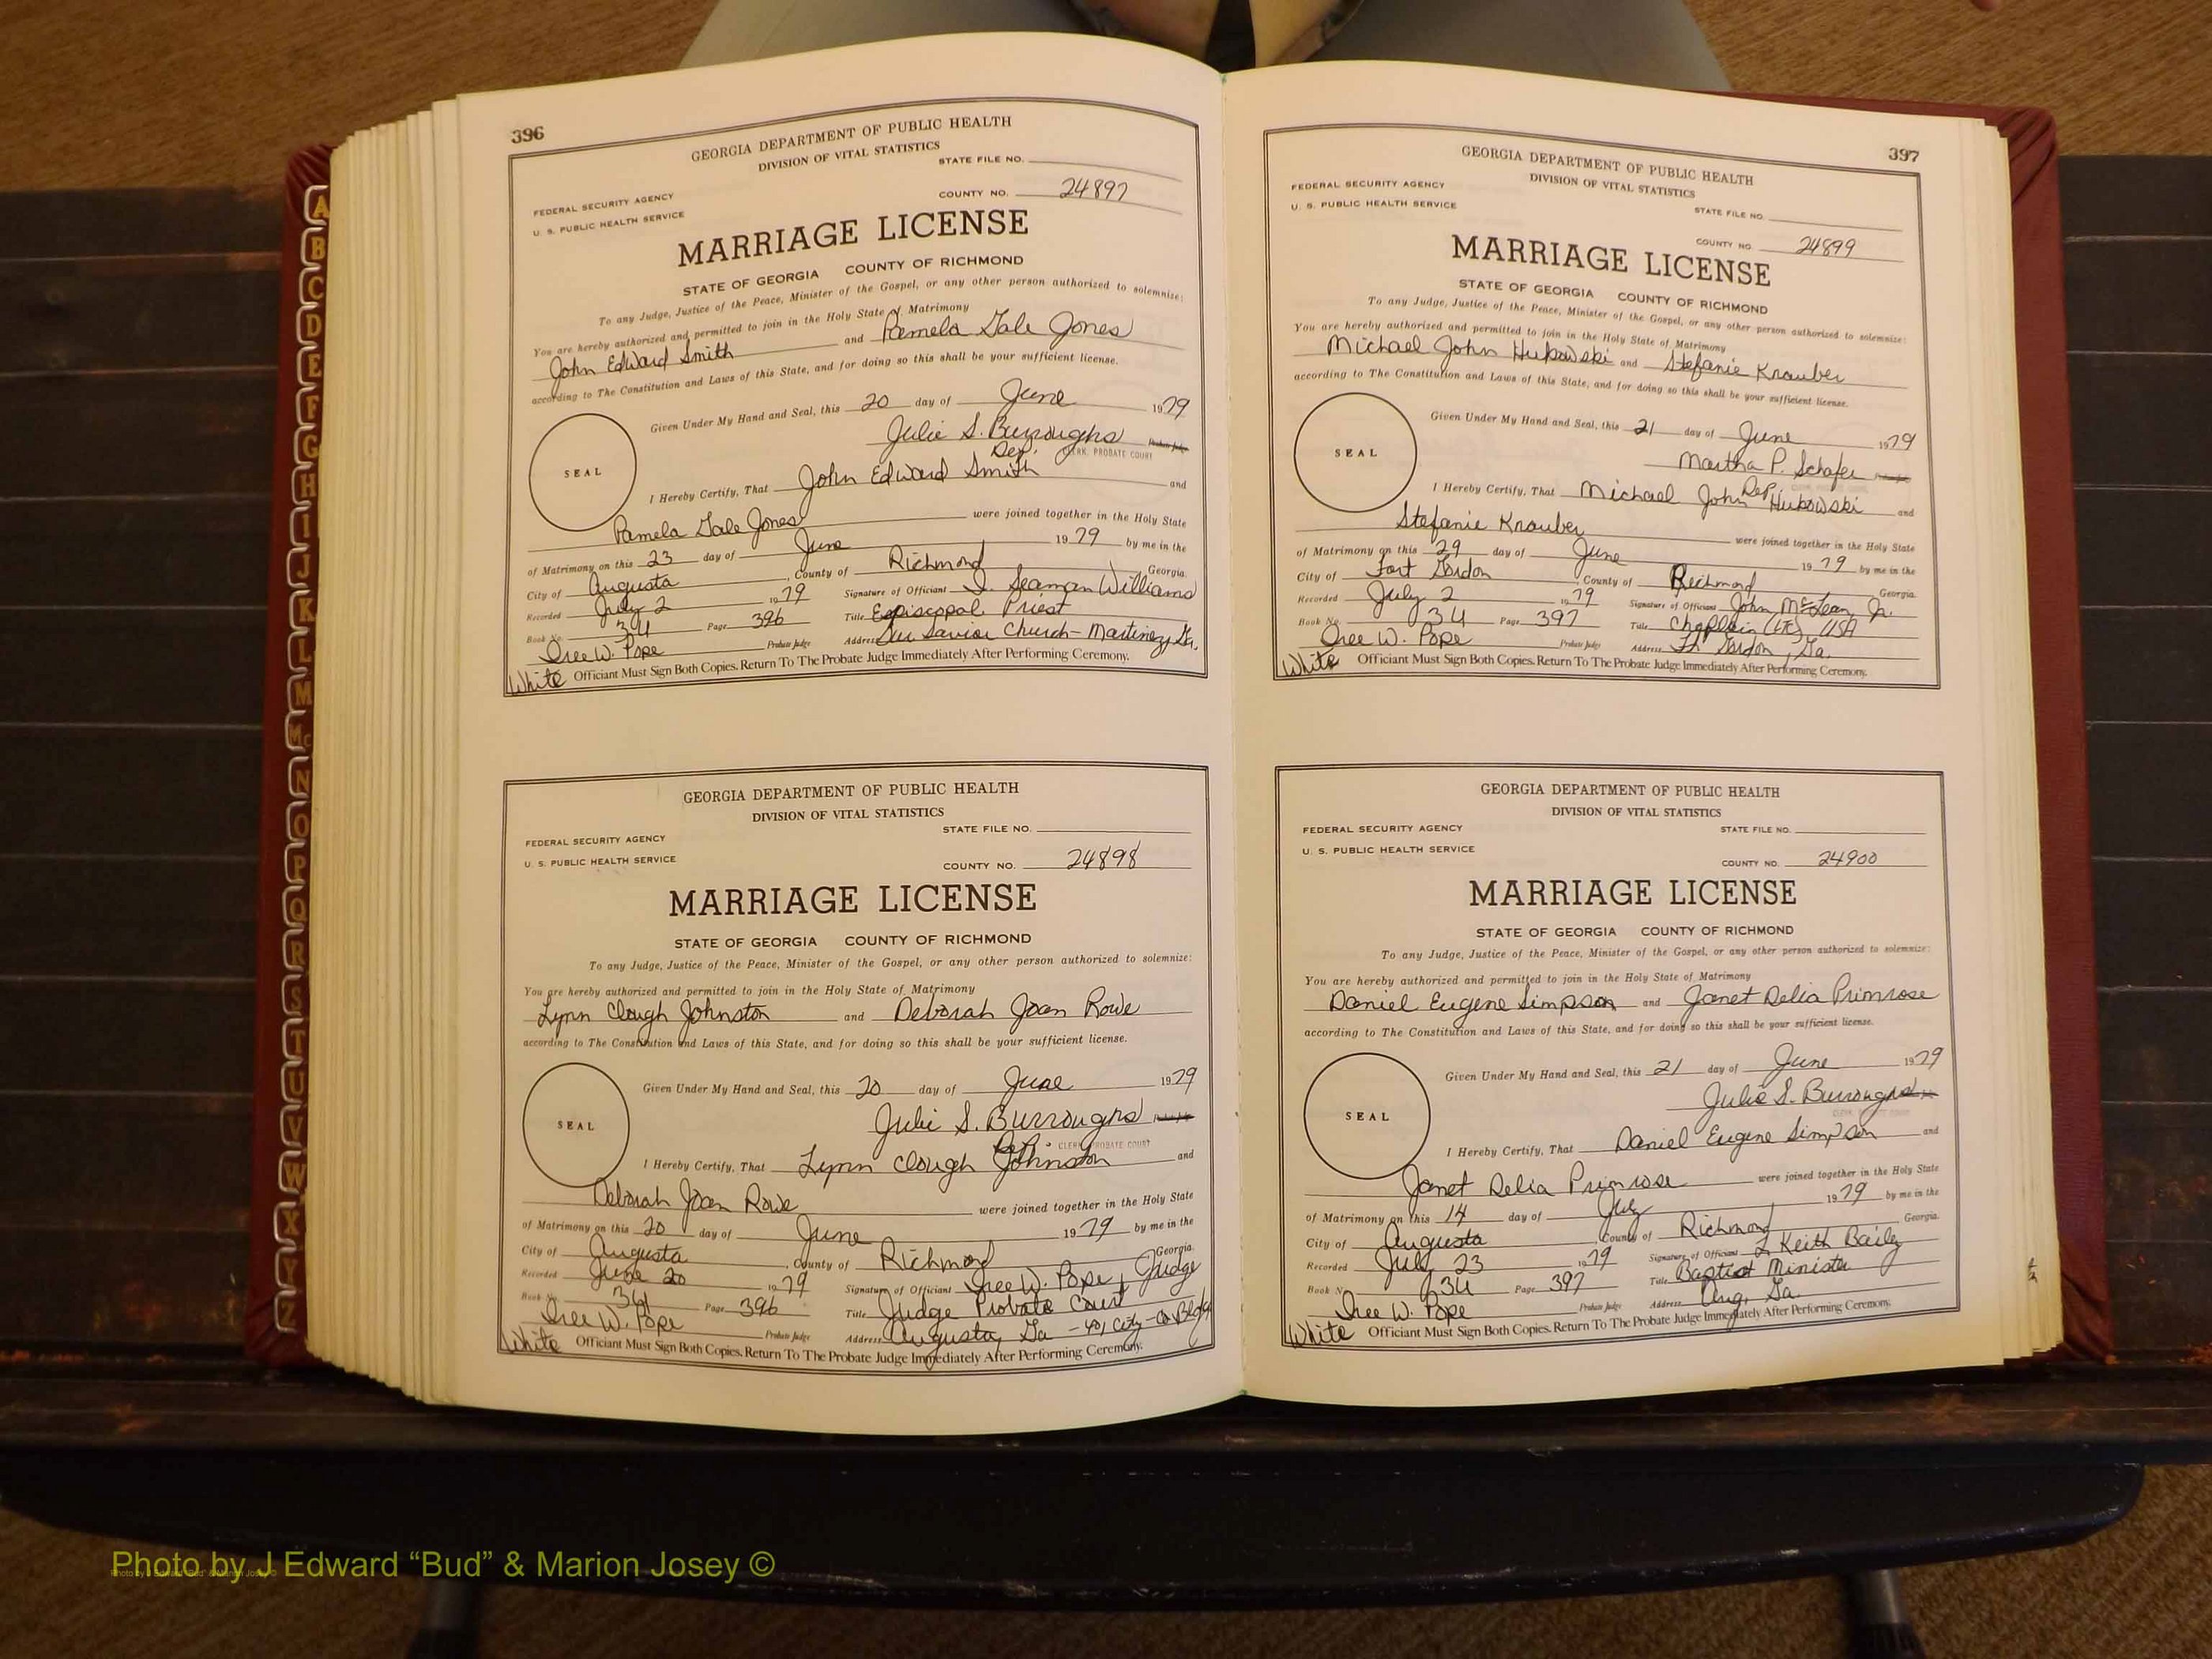 396
GEORGIA DEPARTMENT OF PUBLIC HEALTH
DIVISION OF VITAL STATISTICS
STATE FILE NO.
FEDERAL SECURITY AGENCY
COUNTY NO. 24897
U. S. PUBLIC HEALTH SERVICE
MARRIAGE LICENSE
STATE OF GEORGIA COUNTY OF RICHMOND
To any Judge, Justice of the Peace, Minister of the Gospel, or any other person authorized to solemnize:
You are hereby authorized and permitted to join in the Holy State of Matrimony
John Edward Smith and Pamela Gale Jones
according to The Constitution and Laws of this State, and for doing so this shall be your sufficient license.
Given Under My Hand and Seal, this 20 day of June 1979
Julie S. Burroughs Probate Judge
Dep. CLERK, PROBATE COURT
SEAL
I Hereby Certify, That John Edward Smith and
Pamela Gale Jones were joined together in the Holy State
of Matrimony on this 23 day of June 1979 by me in the
City of Augusta, County of Richmond Georgia.
Recorded July 2 1979 Signature of Officiant Seaman Williams
Book No. 34 Page 396 Title Episcopal Priest
Iree W. Pope Probate Judge Address Our Savior Church - Martinez, Ga.
White Officiant Must Sign Both Copies. Return To The Probate Judge Immediately After Performing Ceremony.
GEORGIA DEPARTMENT OF PUBLIC HEALTH
DIVISION OF VITAL STATISTICS
STATE FILE NO.
FEDERAL SECURITY AGENCY
U. S. PUBLIC HEALTH SERVICE
COUNTY NO. 24898
MARRIAGE LICENSE
STATE OF GEORGIA COUNTY OF RICHMOND
To any Judge, Justice of the Peace, Minister of the Gospel, or any other person authorized to solemnize:
You are hereby authorized and permitted to join in the Holy State of Matrimony
Lynn Clough Johnston and Deborah Joan Rowe
according to The Constitution and Laws of this State, and for doing so this shall be your sufficient license.
Given Under My Hand and Seal, this 20 day of June 1979
Julie S. Burroughs Probate Judge
Dep. CLERK, PROBATE COURT
SEAL
I Hereby Certify, That Lynn Clough Johnston and
Deborah Joan Rowe were joined together in the Holy State
of Matrimony on this 20 day of June 1979 by me in the
City of Augusta, County of Richmond Georgia.
Recorded June 20 1979 Signature of Officiant Iree W. Pope, Judge
Book No. 34 Page 396 Title Judge Probate Court
Iree W. Pope Probate Judge Address Augusta, Ga - 401 City-Co Bldg
White Officiant Must Sign Both Copies. Return To The Probate Judge Immediately After Performing Ceremony.
397
GEORGIA DEPARTMENT OF PUBLIC HEALTH
DIVISION OF VITAL STATISTICS
FEDERAL SECURITY AGENCY
U. S. PUBLIC HEALTH SERVICE
STATE FILE NO.
COUNTY NO. 24899
MARRIAGE LICENSE
STATE OF GEORGIA COUNTY OF RICHMOND
To any Judge, Justice of the Peace, Minister of the Gospel, or any other person authorized to solemnize:
You are hereby authorized and permitted to join in the Holy State of Matrimony
Michael John Hukowski and Stefanie Knauber
according to The Constitution and Laws of this State, and for doing so this shall be your sufficient license.
Given Under My Hand and Seal, this 21 day of June 1979
Martha P. Schafer
Dep.
SEAL
I Hereby Certify, That Michael John Hukowski and
Stefanie Knauber were joined together in the Holy State
of Matrimony on this 29 day of June 1979 by me in the
City of Fort Gordon, County of Richmond Georgia.
Recorded July 2 1979 Signature of Officiant John McLean, Jr.
Book No. 34 Page 397 Title Chaplain (LTC) USA
Iree W. Pope Probate Judge Address Ft Gordon, Ga.
White Officiant Must Sign Both Copies. Return To The Probate Judge Immediately After Performing Ceremony.
GEORGIA DEPARTMENT OF PUBLIC HEALTH
DIVISION OF VITAL STATISTICS
FEDERAL SECURITY AGENCY
STATE FILE NO.
U. S. PUBLIC HEALTH SERVICE
COUNTY NO. 24900
MARRIAGE LICENSE
STATE OF GEORGIA COUNTY OF RICHMOND
To any Judge, Justice of the Peace, Minister of the Gospel, or any other person authorized to solemnize:
You are hereby authorized and permitted to join in the Holy State of Matrimony
Daniel Eugene Simpson and Janet Delia Primrose
according to The Constitution and Laws of this State, and for doing so this shall be your sufficient license.
Given Under My Hand and Seal, this 21 day of June 1979
Julie S. Burroughs
CLERK, PROBATE COURT
SEAL
I Hereby Certify, That Daniel Eugene Simpson and
Janet Delia Primrose were joined together in the Holy State
of Matrimony on this 14 day of July 1979 by me in the
City of Augusta, County of Richmond Georgia.
Recorded July 23 1979 Signature of Officiant Keith Baily
Book No. 34 Page 397 Title Baptist Minister
Iree W. Pope Probate Judge Address Aug, Ga.
White Officiant Must Sign Both Copies. Return To The Probate Judge Immediately After Performing Ceremony.
A
B
C
D
E
F
G
H
I
J
K
L
M
Mc
N
O
P
Q
R
S
T
U
V
W
X
Y
Z
Photo by J Edward “Bud” & Marion Josey ©